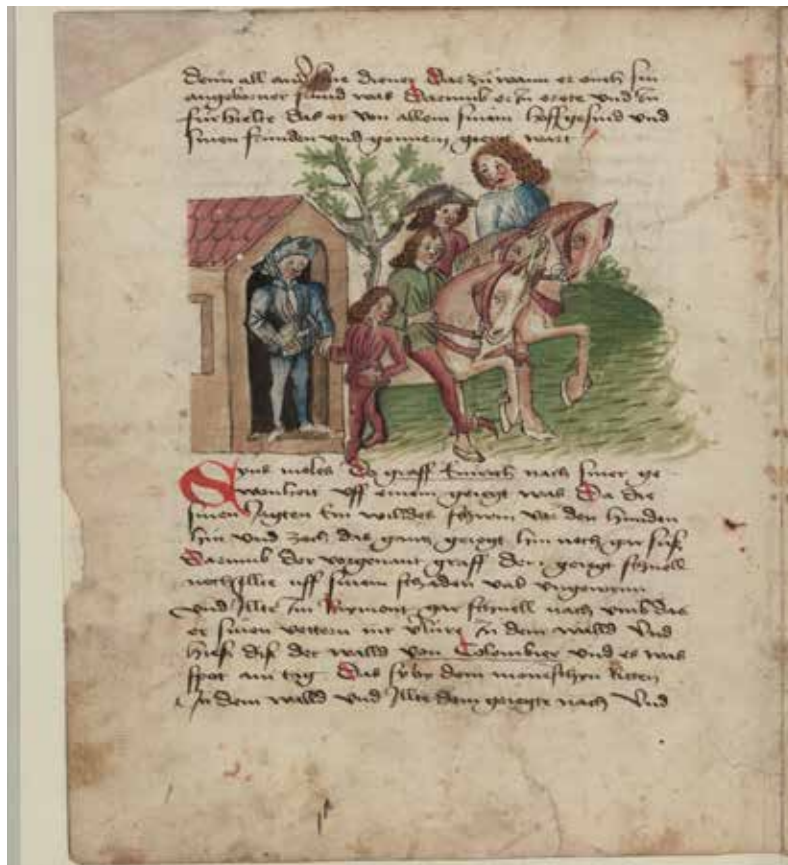 denn all ander sine diener Darzů wann er ouch sin
angeborner fründ was Darumb er in erete und in
für hielte das er von allem sinem hoffgesind und
sinen fründen und gonnern geregt wart
Eyns moles Do graff Emrich nach siner ge
wonheit uff einem geiegt was Da die
sinen Jagten Ein willdes schwin vor den hunden
hin und zoch das gantz geiegt hin noch gar
Darumb der vorgenant graff dem geiegt schnell
noch Illte uff sinem schaden und
und Illte Im Reymont gar schnell nach umb das
er sinen vettern nit In dem walld Und
hieß diß der walld von Colombier und es was
spot am tag Das sy by dem moneschyn Ritten
In dem walld und Illte dem geiegte nach Und